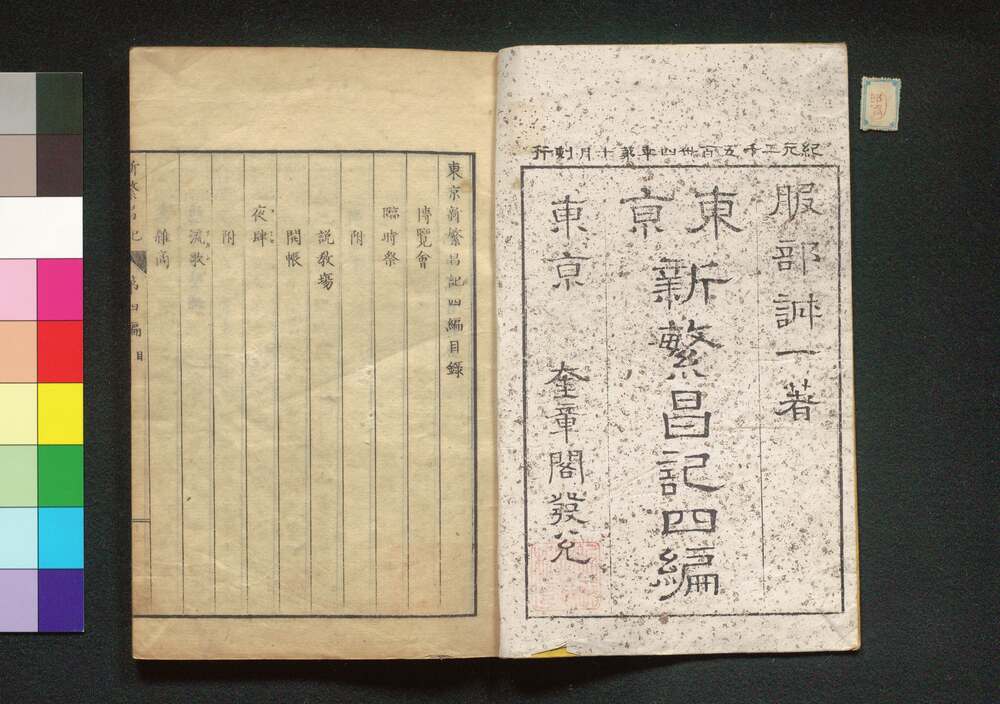 紀元二千五百卅四年第十月刻行
服部誠一著
東京新繁昌記四編
東京 奎章閣發兌
東京新繁昌記四編目錄
博覽會
臨時祭
附
說教場
開帳
夜肆
附
流歌
雜商